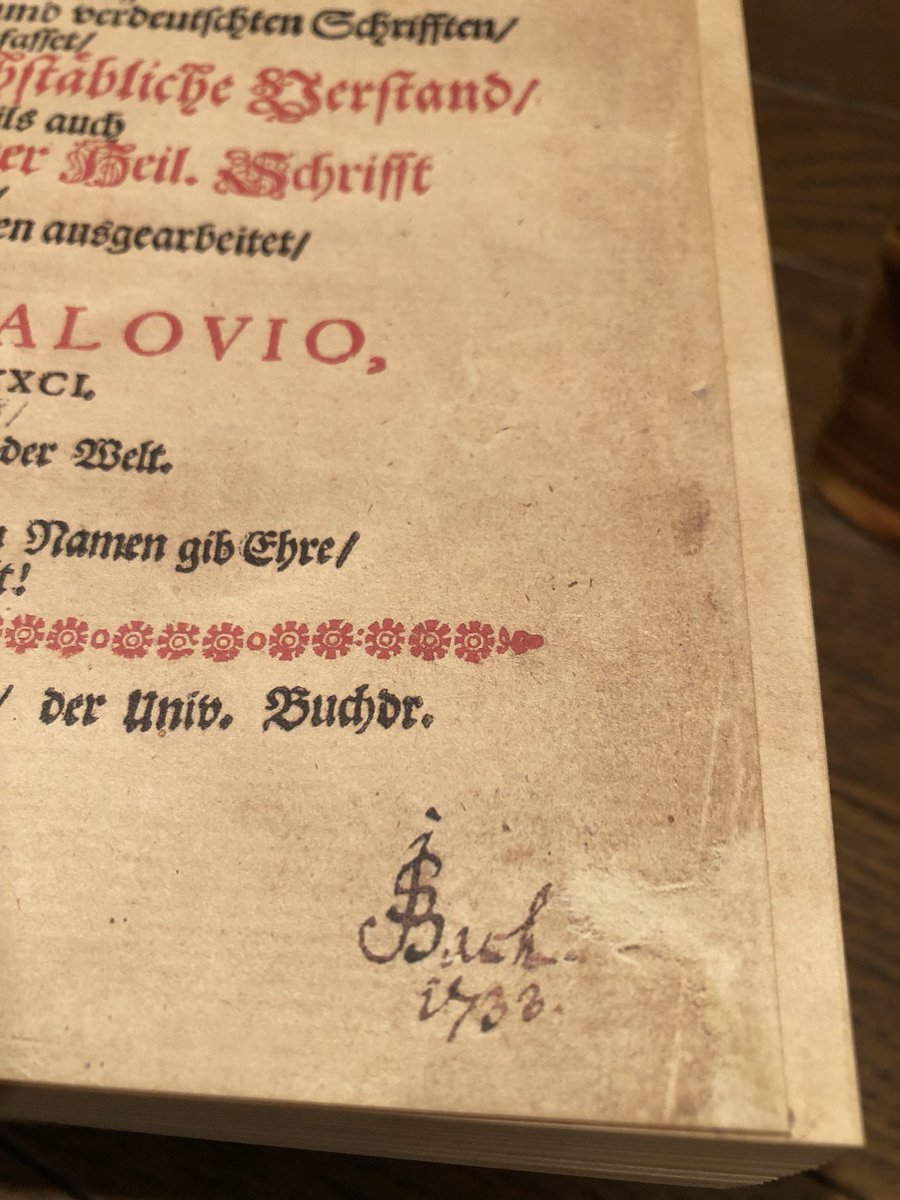 und verdeutschten Schrifften/
fasset/
bstäbliche Verstand/
ils auch
er Heil. Schrifft
en ausgearbeitet/
ALOVIO,
XCI.
der Welt.
Namen gib Ehre/
t!
/ der Univ. Buchdr.
JSBach.
1733.